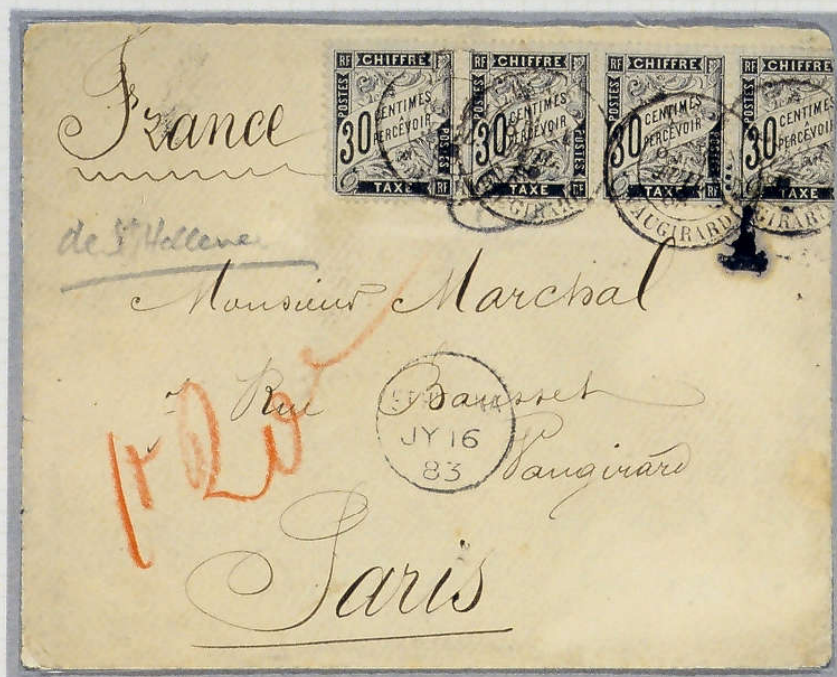 France
RF CHIFFRE
POSTES
30 CENTIMES
À PERCEVOIR
POSTES
TAXE RF
RF CHIFFRE
POSTES
30 CENTIMES
À PERCEVOIR
POSTES
TAXE RF
RF CHIFFRE
POSTES
30 CENTIMES
À PERCEVOIR
POSTES
TAXE RF
RF CHIFFRE
POSTES
30 CENTIMES
À PERCEVOIR
TAXE
VAUGIRARD
T
de St Hellene
Monsieur Marchal
Rue Bausset
Vaugirard
Paris
JY 16
83